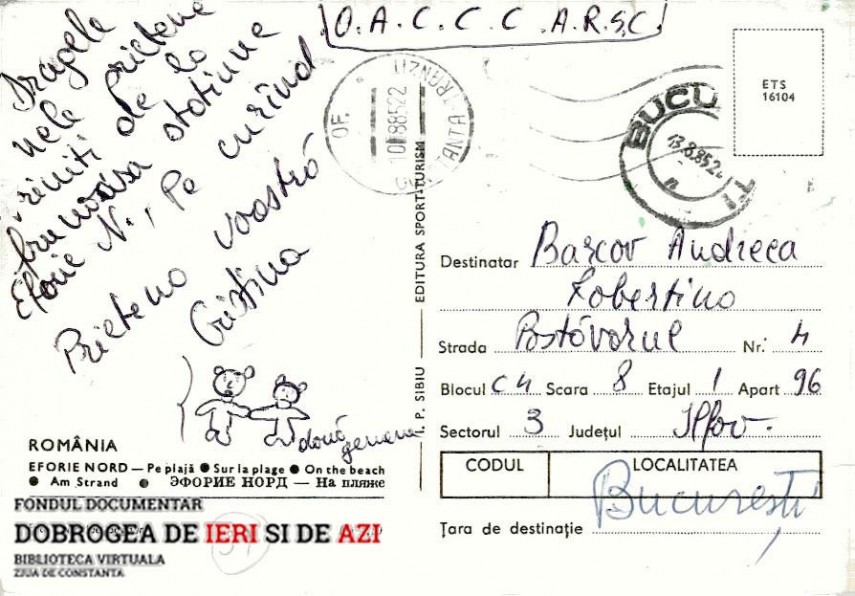 O.A.C.C.C.A.R.S.C.
Dragele
mele prietene
veniti de la
frumoasa statiune
Eforie N., Pe curînd
Prietena voastră
Cristina
două
gemene
ROMÂNIA
EFORIE NORD — Pe plajă ● Sur la plage ● On the beach
● Am Strand ● ЭФОРИЕ НОРД — На пляже
FONDUL DOCUMENTAR
DOBROGEA DE IERI SI DE AZI
BIBLIOTECA VIRTUALA
ZIUA DE CONSTANTA
I. P. SIBIU — EDITURA SPORT-TURISM
OF.
BUCU
13.8.85.22
ETS
16104
Destinatar Barcov Andreea
Robertino
Strada Postăvarul Nr. 4
Blocul C4 Scara 8 Etajul 1 Apart 96
Sectorul 3 Județul Ilfov.
CODUL LOCALITATEA
București
Țara de destinație